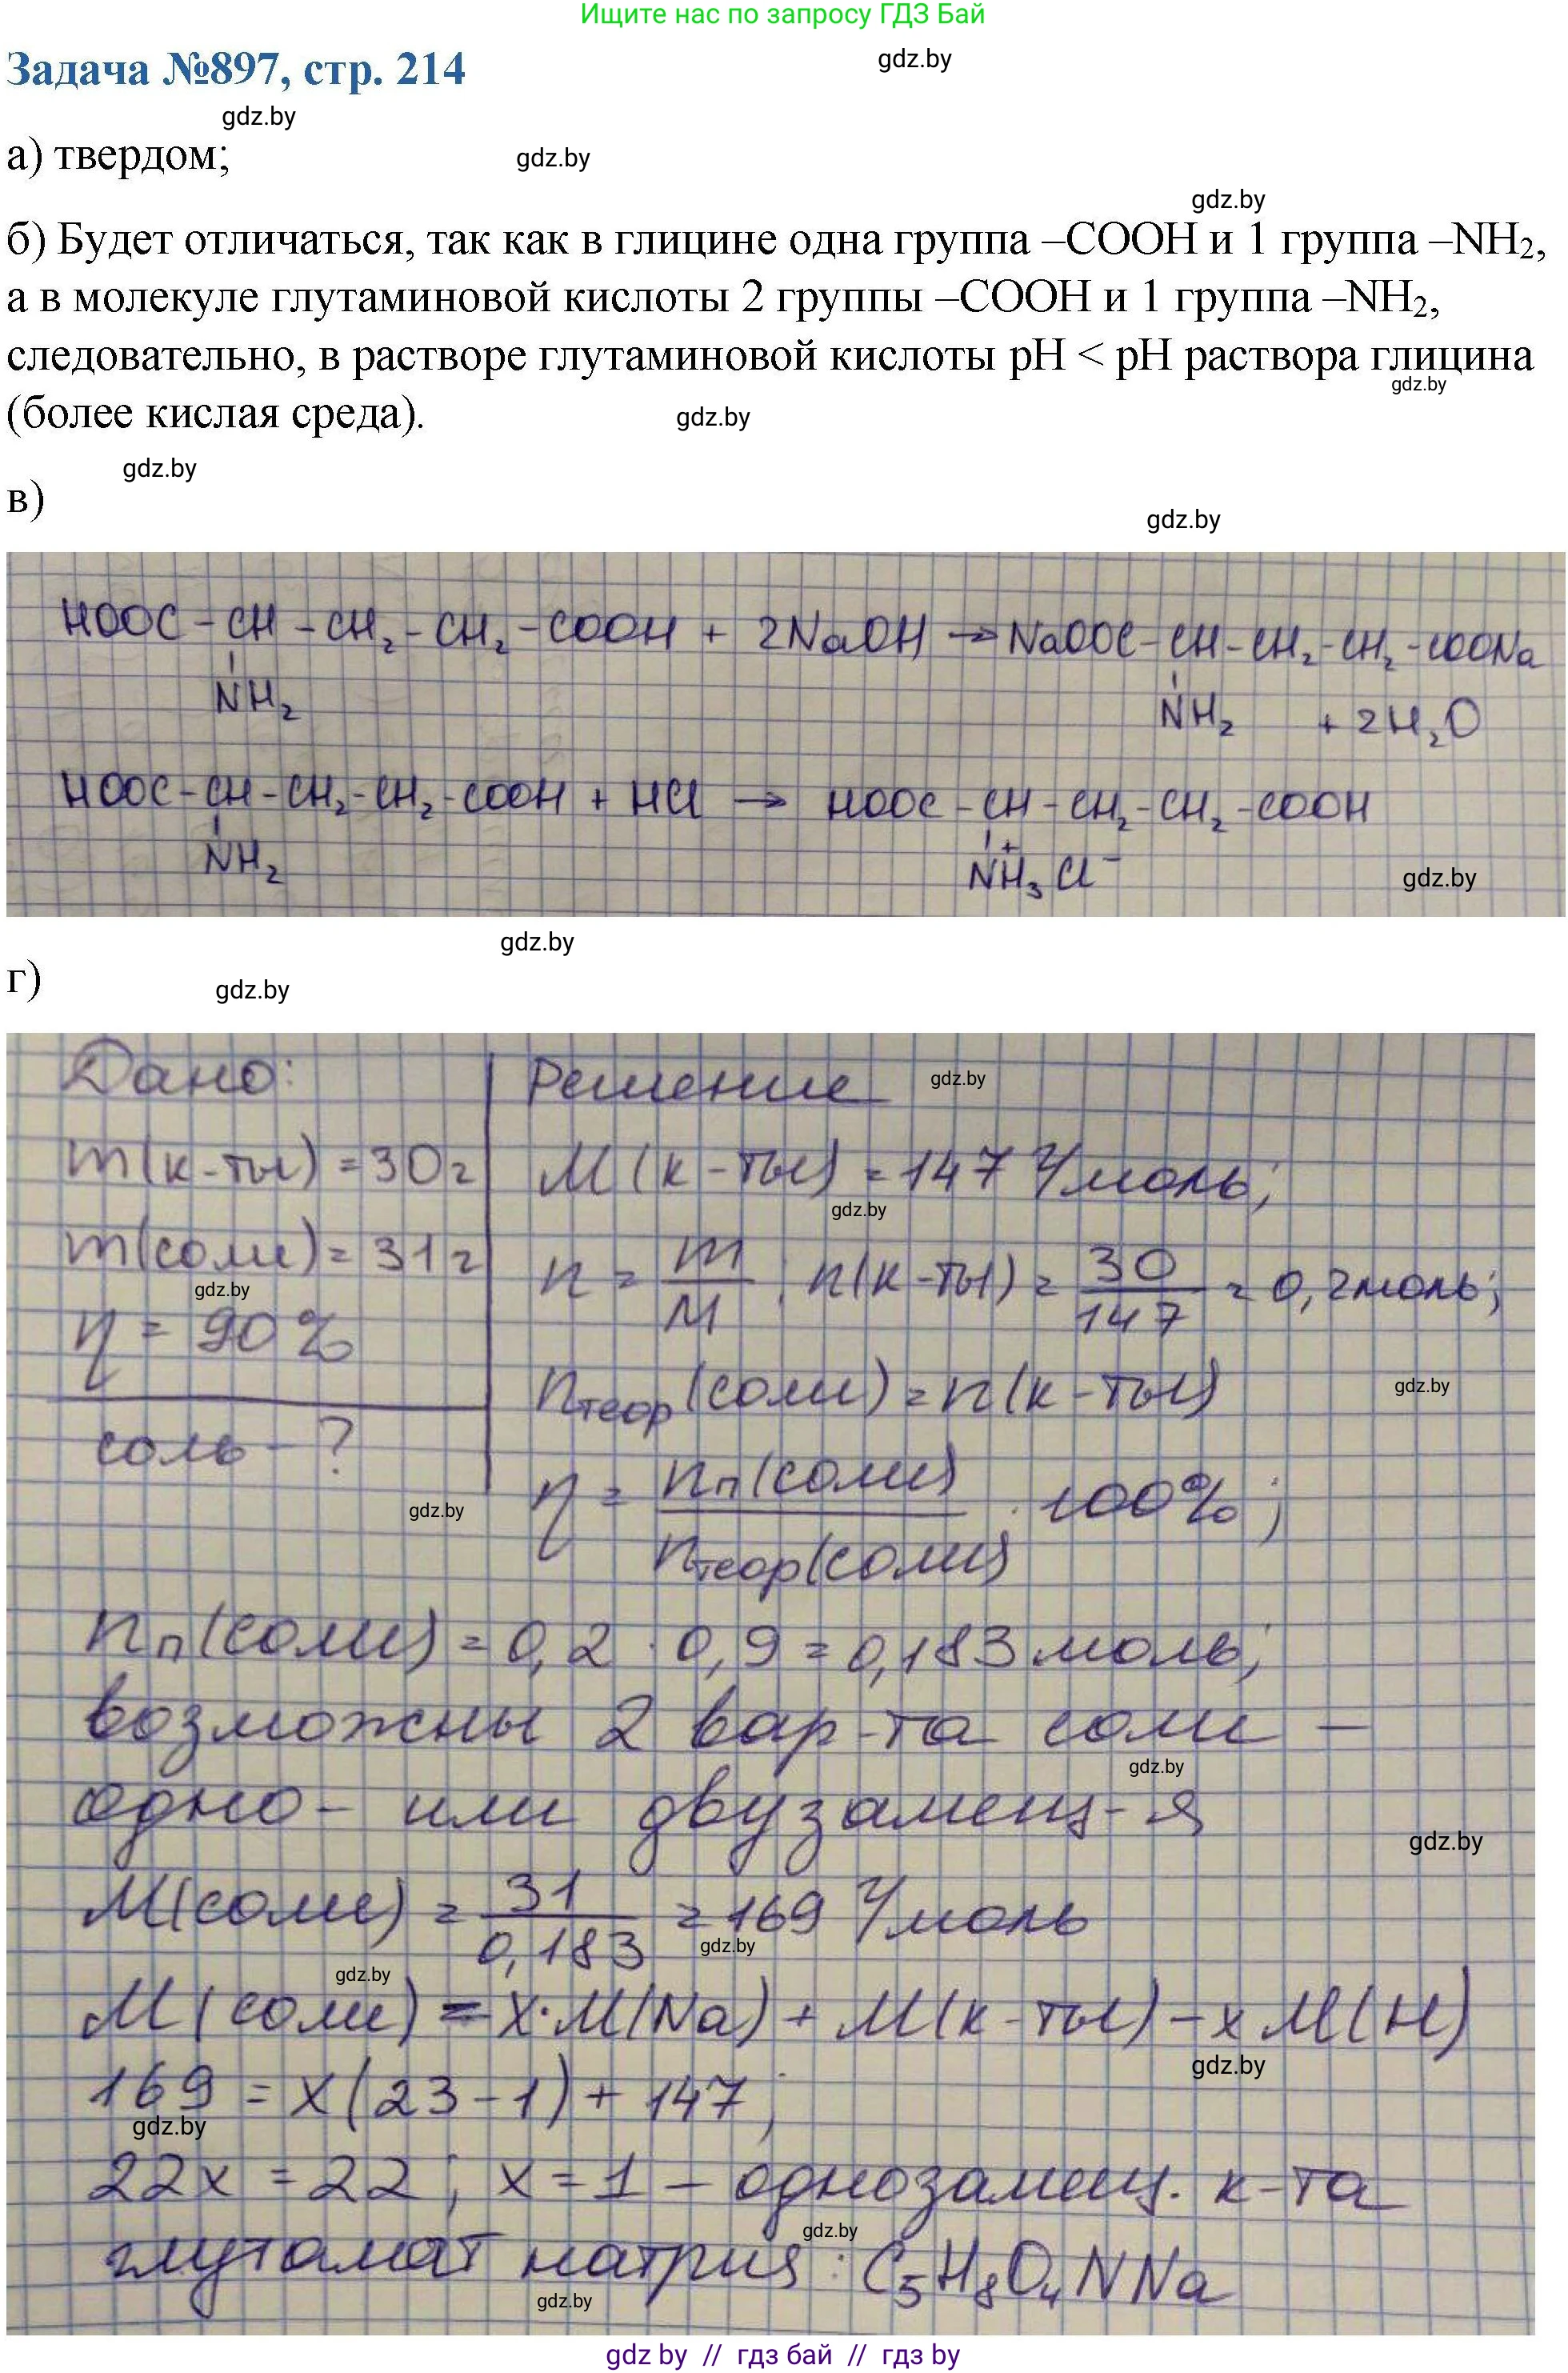 Ищите нас по запросу ГДЗ Бай
gdz.by
Задача №897, стр. 214
gdz.by
а) твердом;
gdz.by
gdz.by
б) Будет отличаться, так как в глицине одна группа –COOH и 1 группа –NH₂,
а в молекуле глутаминовой кислоты 2 группы –COOH и 1 группа –NH₂,
следовательно, в растворе глутаминовой кислоты pH < pH раствора глицина
gdz.by
(более кислая среда).
gdz.by
gdz.by
в)
gdz.by
HOOC – CH – CH₂ – CH₂ – COOH + 2NaOH → NaOOC – CH – CH₂ – CH₂ – COONa
NH₂ NH₂ + 2H₂O
HOOC – CH – CH₂ – CH₂ – COOH + HCl → HOOC – CH – CH₂ – CH₂ – COOH
NH₂ NH₃⁺ Cl⁻
gdz.by
gdz.by
г)
gdz.by
Дано: Решение
gdz.by
m(к-ты) = 30г M(к-ты) = 147 г/моль;
gdz.by
m(соли) = 31г n = m/M; n(к-ты) = 30/147 = 0,2моль;
gdz.by
η = 90%
nтеор(соли) = n(к-ты)
gdz.by
соль – ?
η = nп(соли)/nтеор(соли) · 100%;
gdz.by
nп(соли) = 0,2 · 0,9 = 0,183 моль;
возможны 2 вар-та соли –
gdz.by
одно- или двузамещ-я
gdz.by
M(соли) = 31/0,183 = 169 г/моль
gdz.by
gdz.by
M(соли) = x·M(Na) + M(к-ты) – xM(H)
gdz.by
169 = x(23-1) + 147;
gdz.by
22x = 22; x = 1 – однозамещ. к-та
gdz.by
глутамат натрия: C₅H₈O₄NNa
gdz.by
gdz by // гдз бай // гдз by